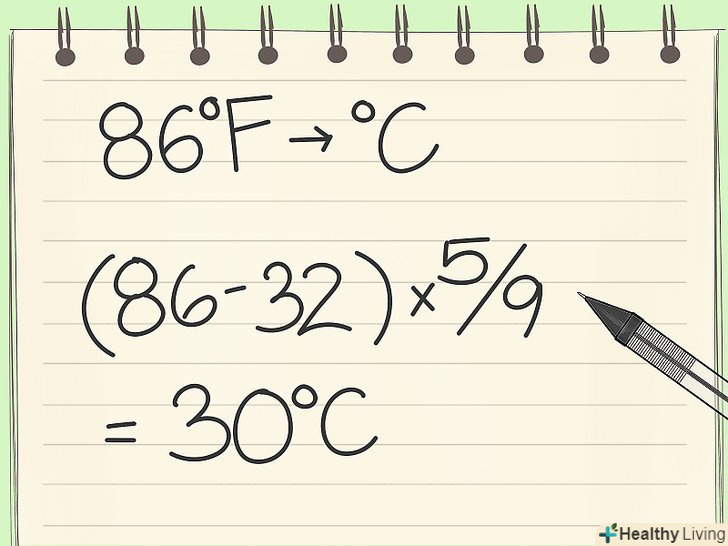 86°F → °C
(86 - 32) x 5/9
= 30°C
Healthy Living